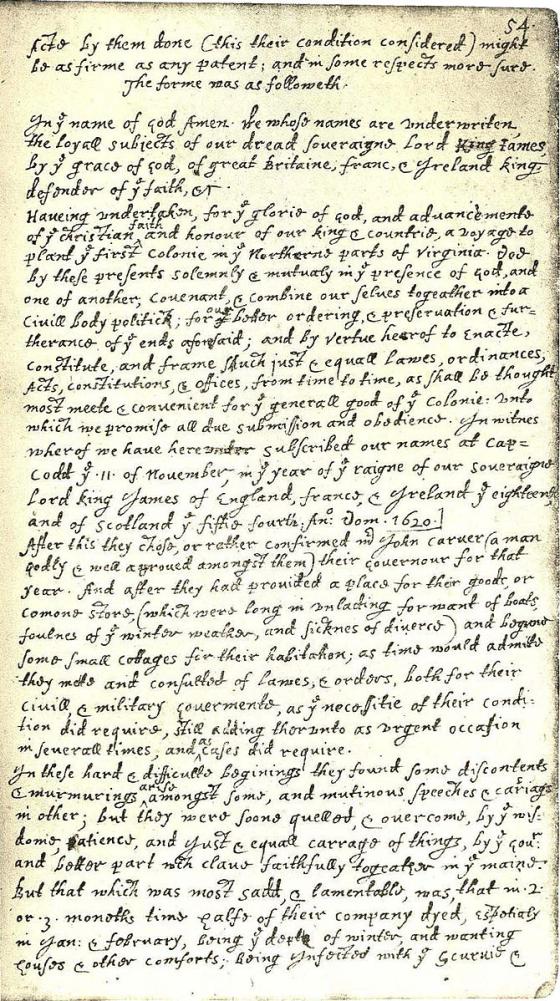 54
Acts by them done (this their condition considered) might
be as firme as any patent; and in some respects more sure.
The forme was as followeth.
In yͤ name of god Amen. We whose names are underwriten,
the loyall subjects of our dread soveraigne Lord King James,
by yͤ grace of god, of great Britaine, franc, & Ireland king,
defender of yͤ faith, &c.
Haveing undertaken, for yͤ glorie of god, and advancemente
of yͤ christian faith and honour of our king & countrie, a voyage to
plant yͤ first colonie in yͤ Northerne parts of Virginia. Doe
by these presents solemnly & mutualy in yͤ presence of god, and
one of another, covenant, & combine our selves togeather into a
Civill body politick; for our better ordering, & preservation & fur-
therance of yͤ ends aforesaid; and by vertue hearof to Enacte,
constitute, and frame such just & equall lawes, ordinances,
Acts, constitutions, & offices, from time to time, as shall be thought
most meete & convenient for yͤ generall good of yͤ Colonie: unto
which we promise all due submission and obedience. In witnes
wherof we have hereunder subscribed our names at Cap=
Codd yͤ .11. of November, in yͤ year of yͤ raigne of our soveraigne
Lord king James of England, france, & Ireland yͤ eighteenth
and of Scotland yͤ fiftie fourth. Anͦ: Dom. 1620.]
After this they chose, or rather confirmed mͬ John Carver (a man
godly & well approved amongst them) their governour for that
year. And after they had provided a place for their goods, or
comone store, (which were long in unlading for want of boats,
foulnes of yͤ winter weather, and sicknes of diverce) and begune
some small cottages for their habitation; as time would admitte
they mette and consulted of lawes, & orders, both for their
civill, & military govermente, as yͤ necessitie of their condi-
tion did require, still adding therunto as urgent occasion
in severall times, and as cases did require.
In these hard & difficulte beginings they found some discontents
& murmurings arise amongst some, and mutinous speeches & cariags
in other; but they were soone quelled, & overcome, by yͤ wis-
dome, patience, and just & equall carrage of things, by yͤ Govͬ
and better part wͨh clave faithfully togeather in yͤ maine.
But that which was most sadd, & lamentable, was, that in .2.
or .3. moneths time halfe of their company dyed, espetialy
in Jan: & february, being yͤ depth of winter, and wanting
houses & other comforts; being Infected with yͤ Scurvie &